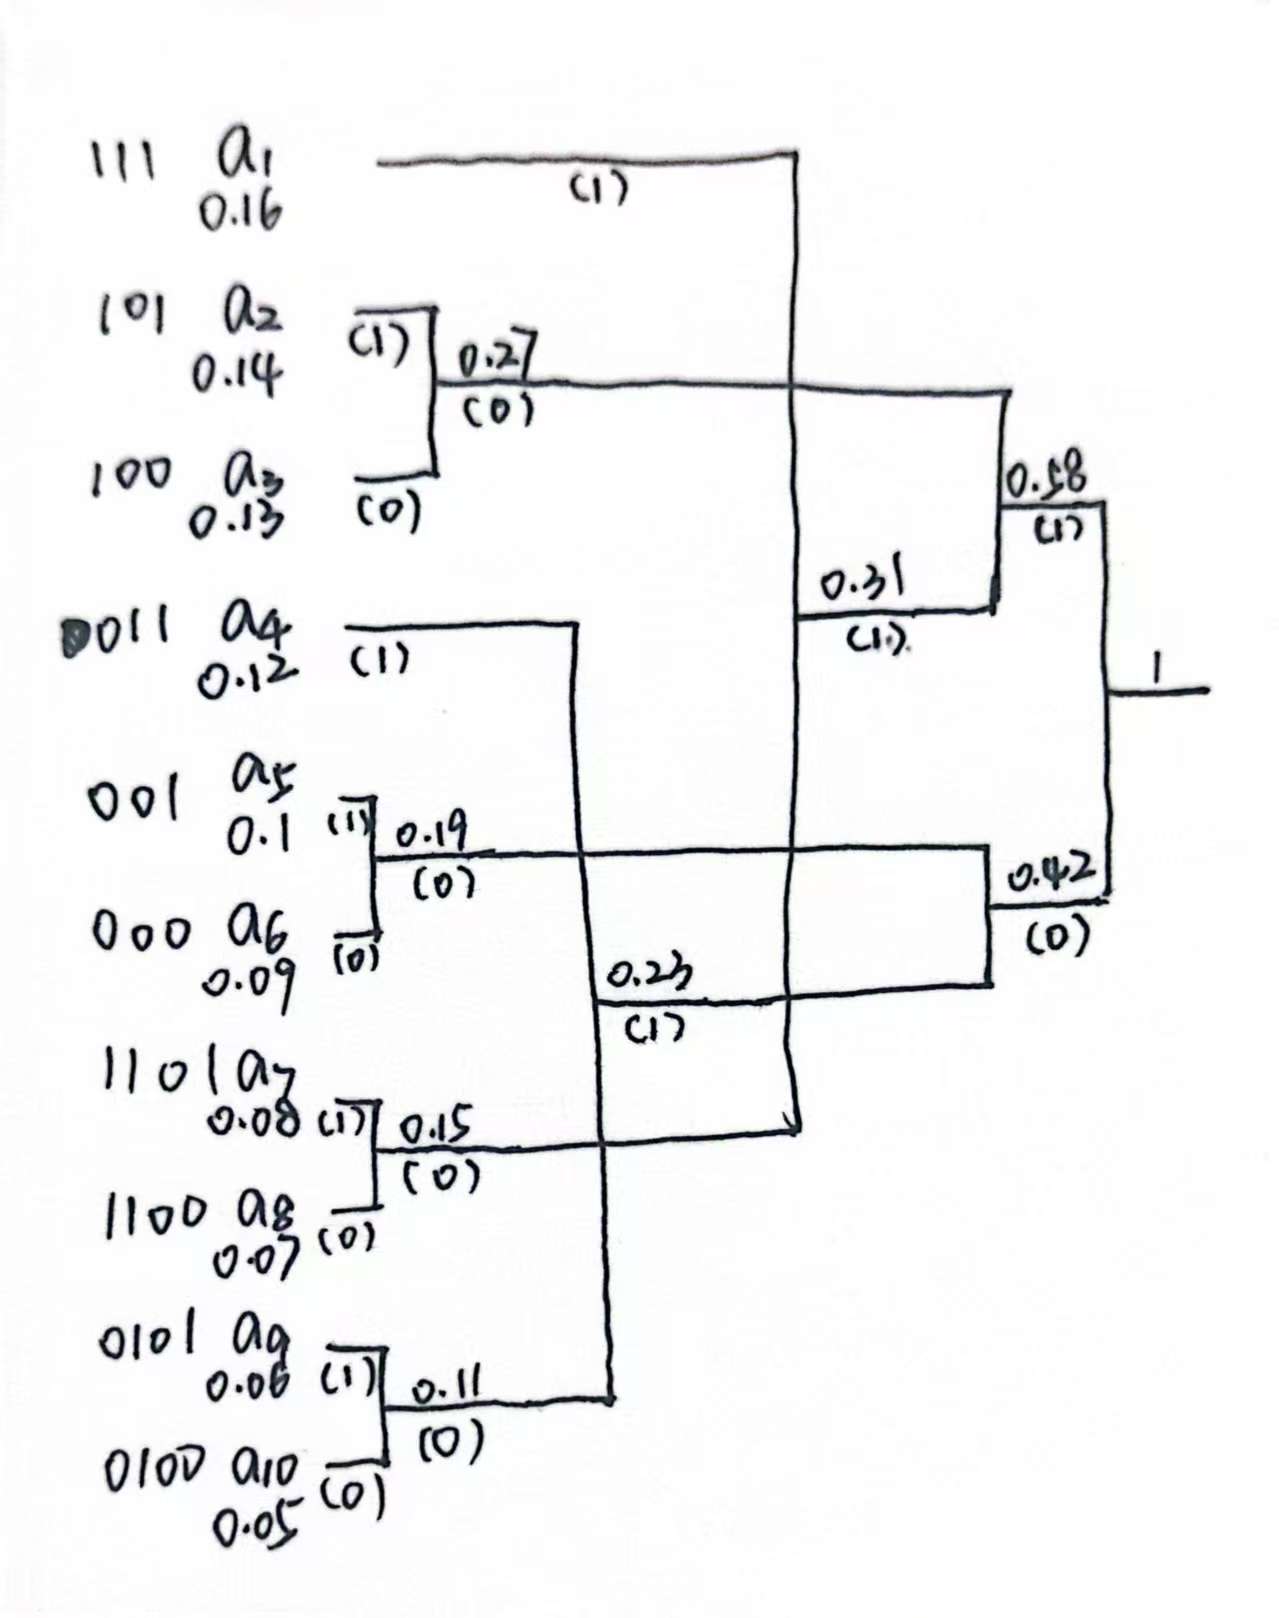 111 a1 (1)
0.16
101 a2 (1) 0.27 (0)
0.14
100 a3 (0)
0.13
0.58 (1)
0.31 (1)
011 a4 (1)
0.12
1
001 a5 (1) 0.19 (0)
0.1
0.42 (0)
000 a6 (0)
0.09
0.23 (1)
1101 a7
0.08 (1) 0.15 (0)
1100 a8 (0)
0.07
0101 a9 (1)
0.06
0.11 (0)
0100 a10 (0)
0.05